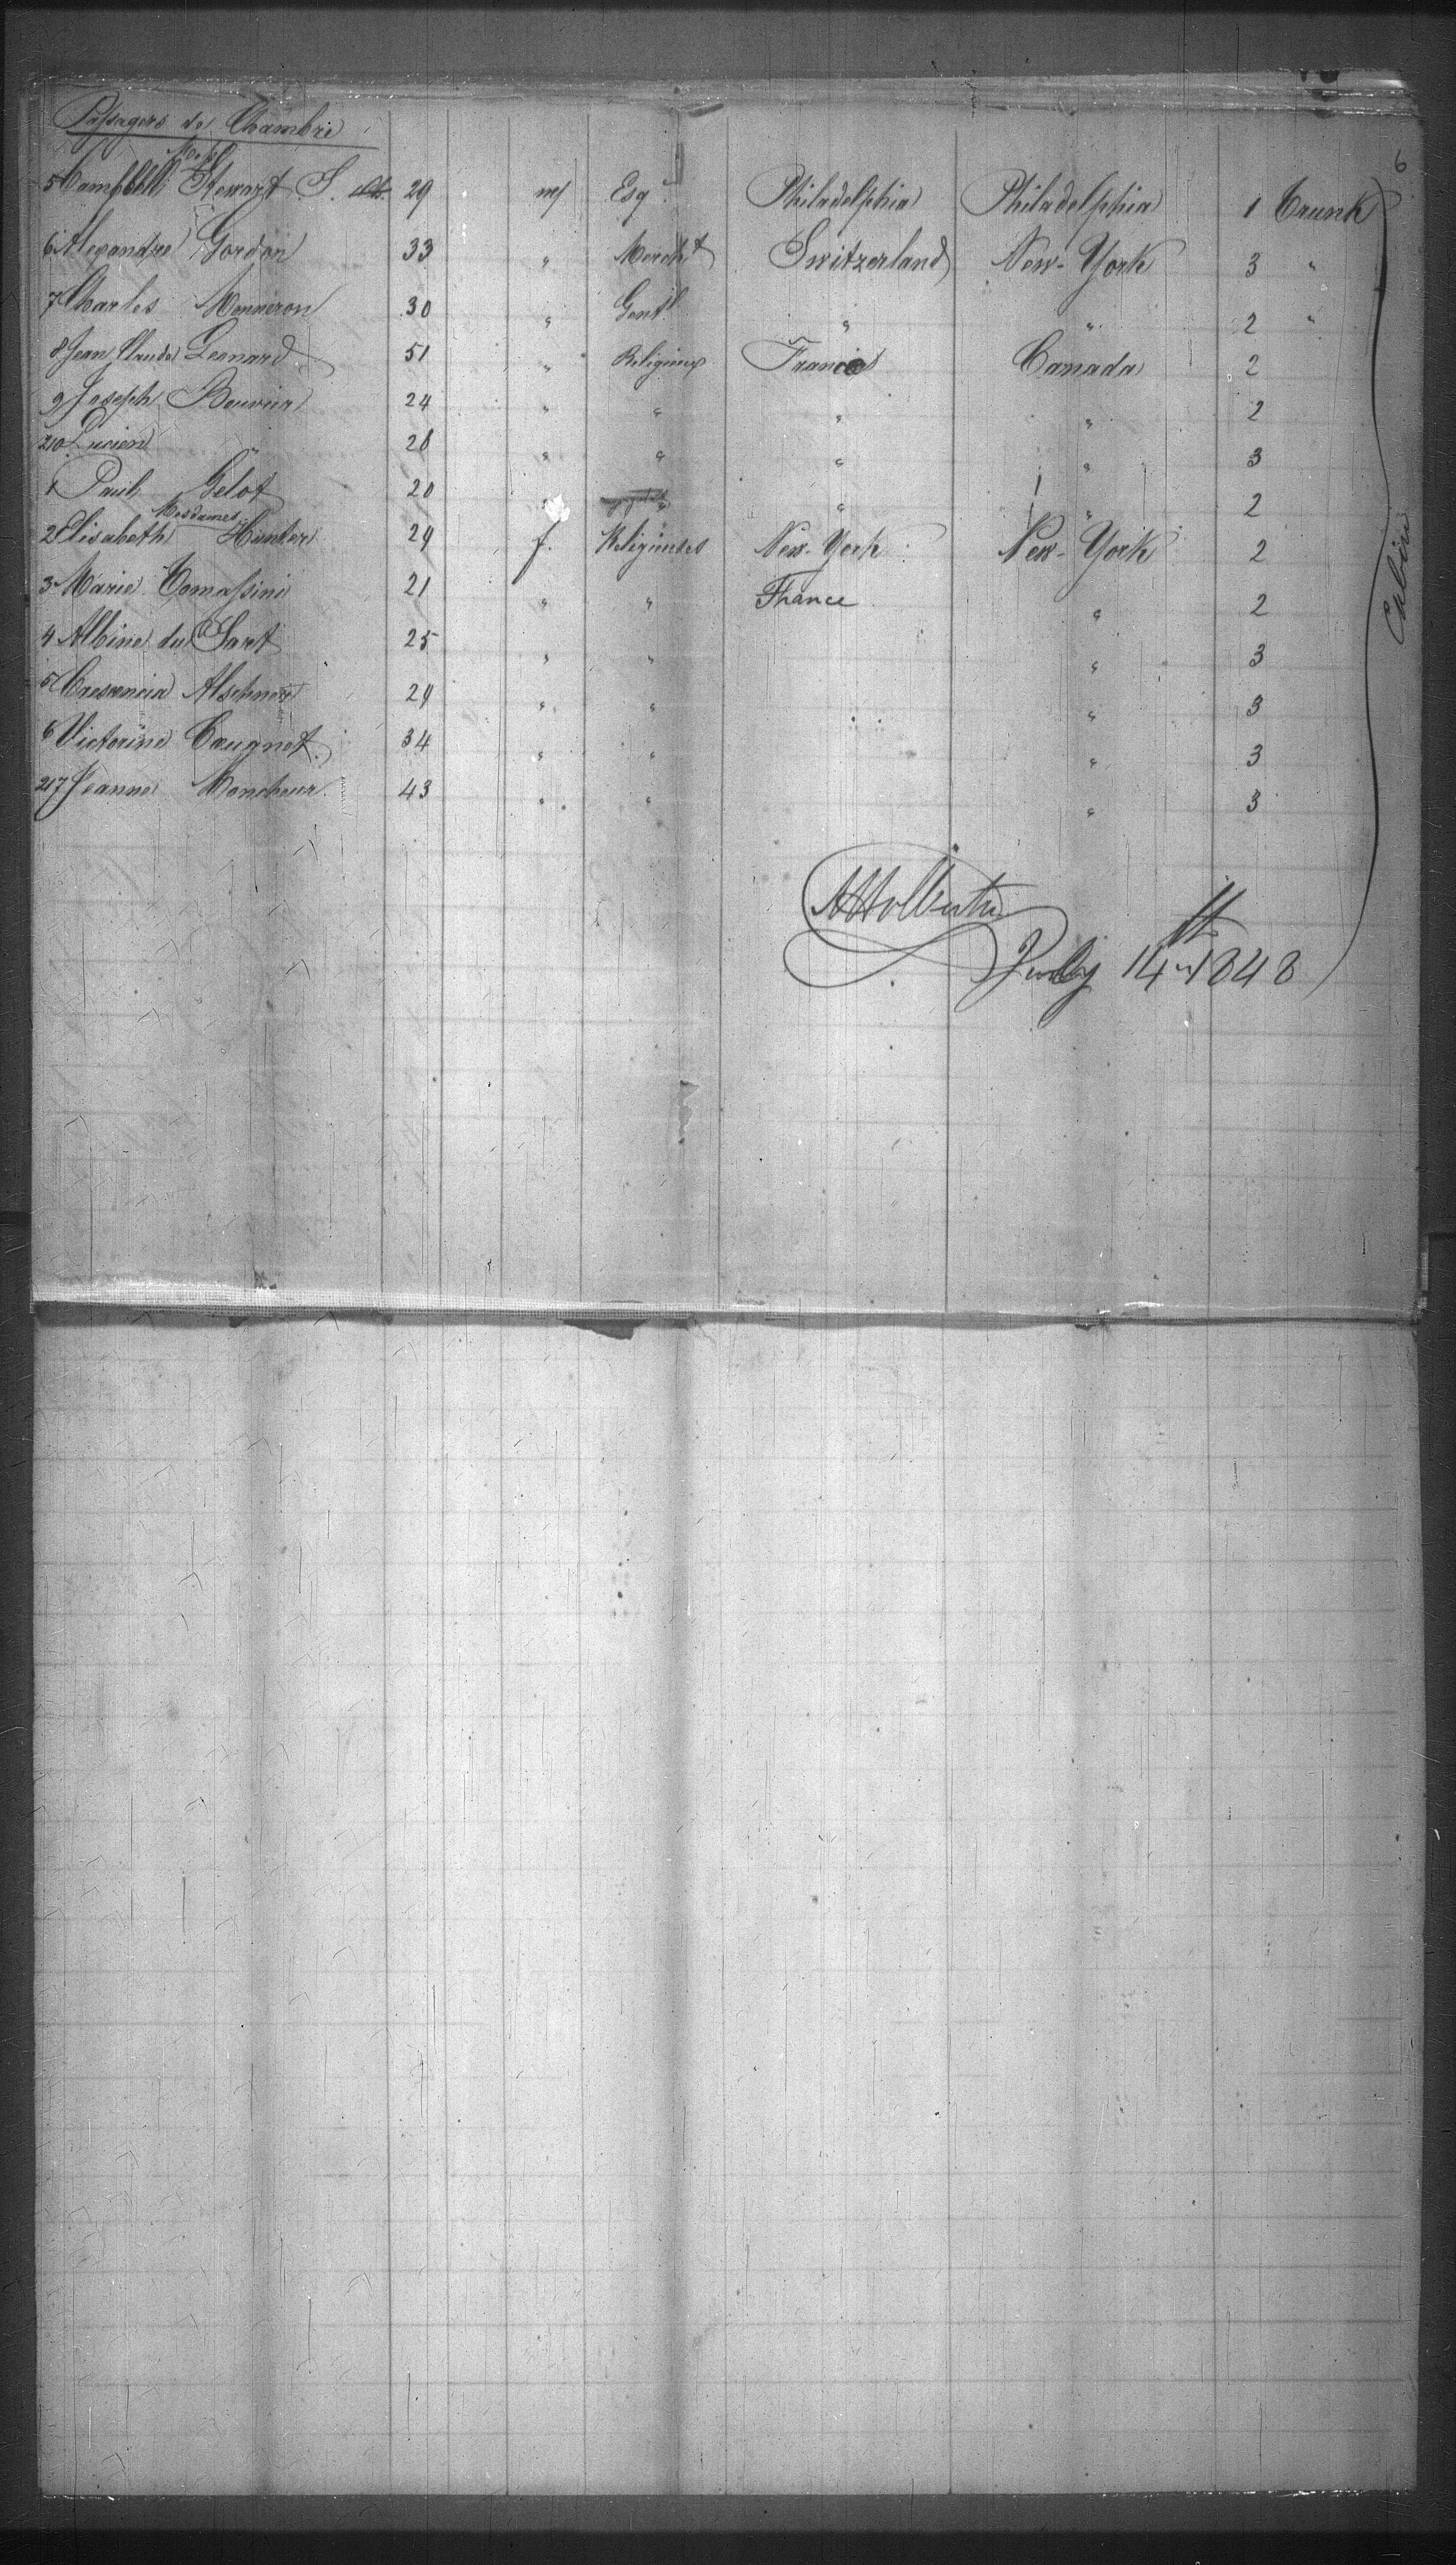 6
Passagers de Chambre
Mess
5 Campbell Stewart S. 29 m Esqr Philadelphia Philadelphia 1 Trunk
6 Alexandre Gordon 33 " Mercht Switzerland New-York 3 "
7 Charles Monneron 30 " Gentl " " 2 "
8 Jean Claude Leonard 51 " Religieux France Canada 2
9 Joseph Bouvier 24 " " " " 2
210 Lucien " 28 " " " " 3
1 Paul Gelot 20 " " " " 2
Mesdames
2 Elisabeth Hunter 29 f. Religieuses New-York New-York 2
3 Marie Tomassini 21 " " France " 2
4 Albine du Sart 25 " " " 3
5 Crescencia Alschner 29 " " " 3
6 Victorine Caugnet 34 " " " 3
217 Jeanne Moncheur 43 " " " 3
Cabin
July 14th 1848